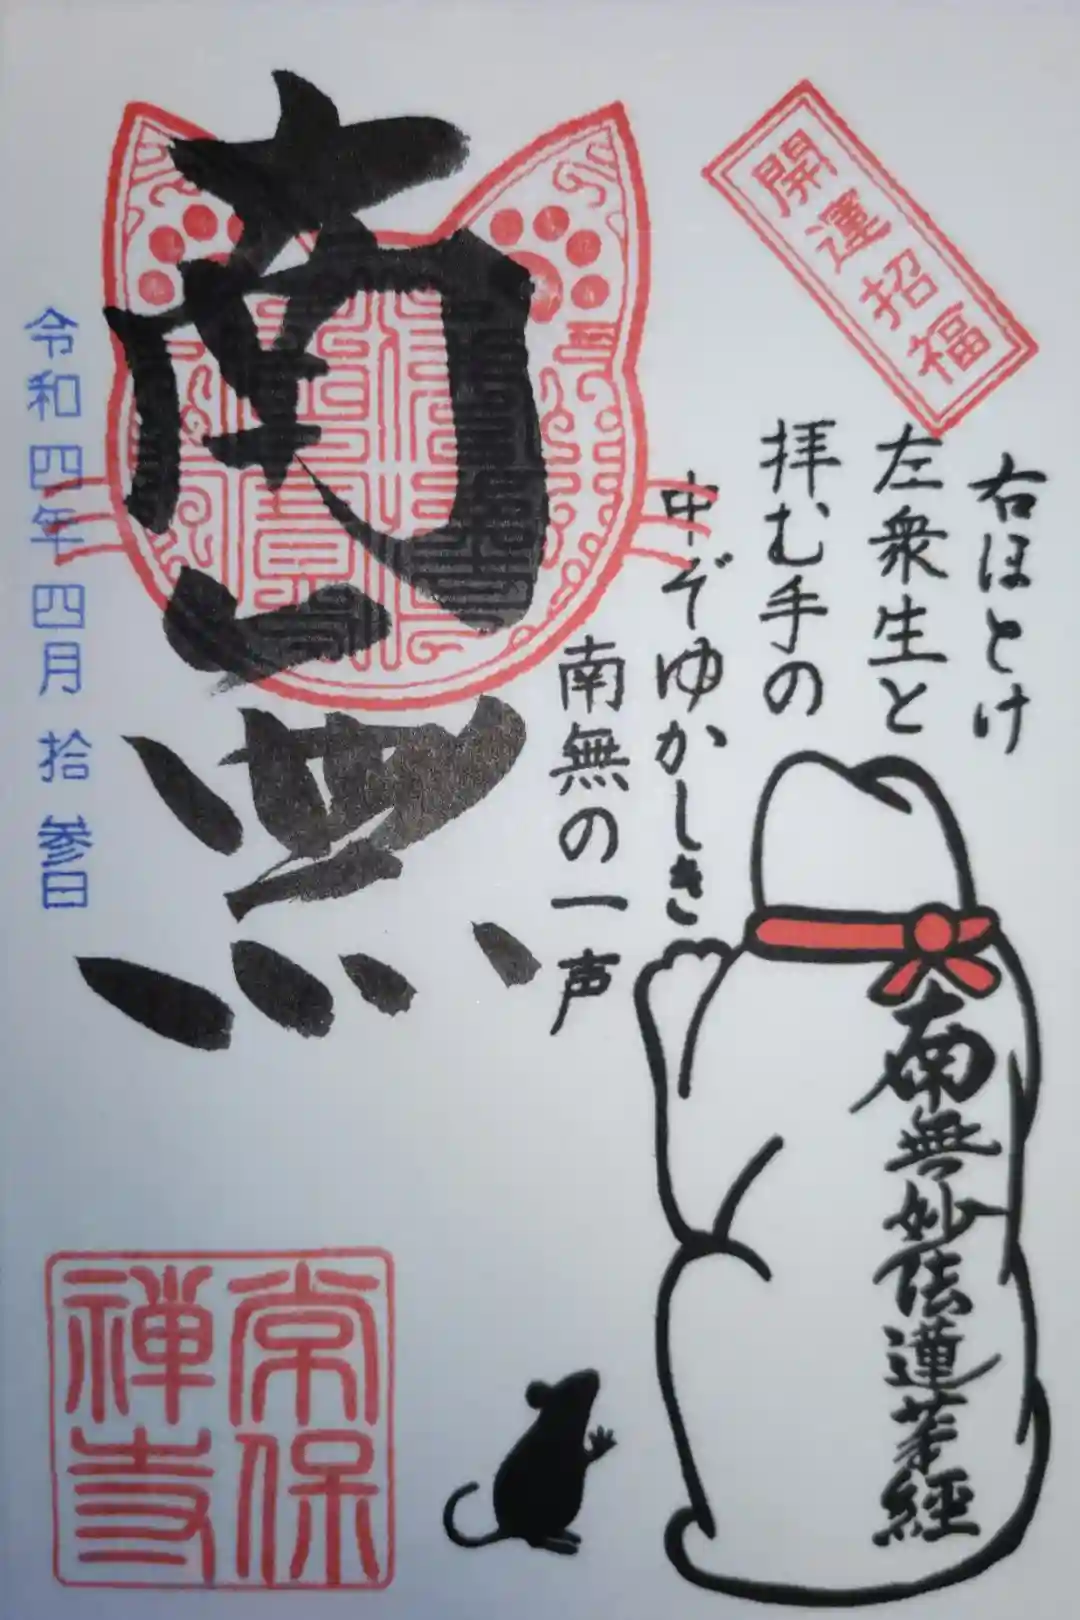 開運招福
右ほとけ
左衆生と
拝む手の
中ぞゆかしき
南無の一声
南無妙法蓮華経
南無
令和四年四月拾参日
常保
禅寺